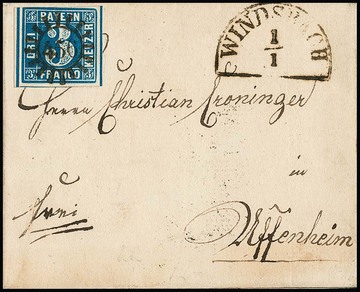 BAYERN
DREI
3
KREUZER
FRANCO
WINDSBACH
1
1
Herrn Christian Croninger
in
frei
Uffenheim